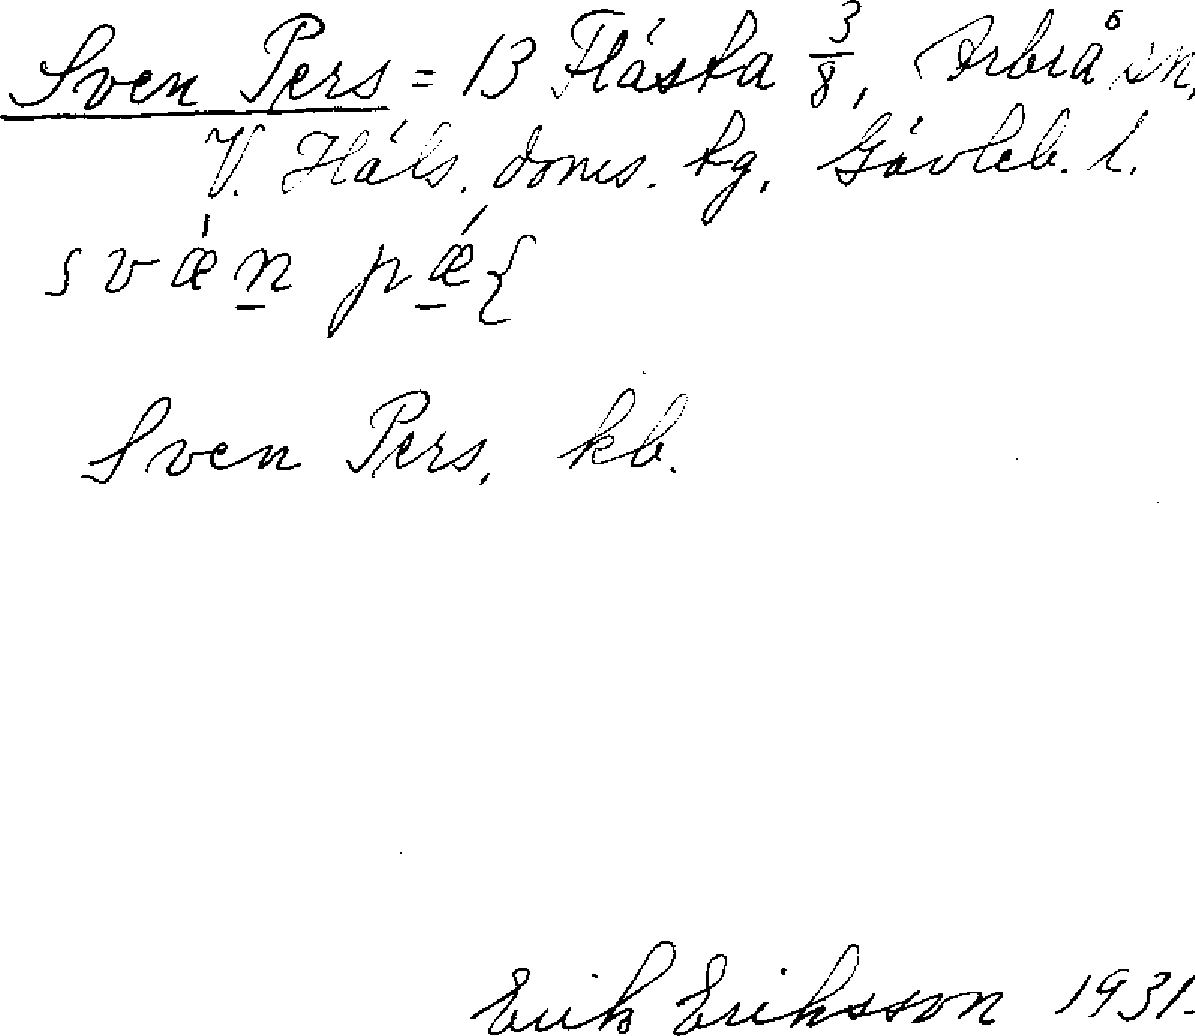 Sven Pers = 13 Flästa 3/8, Arbrå sn,
V. Häls. doms. tg, Gävleb. l.
svæ̀n pǽ{
Sven Pers, kb.
Erik Eriksson 1931.